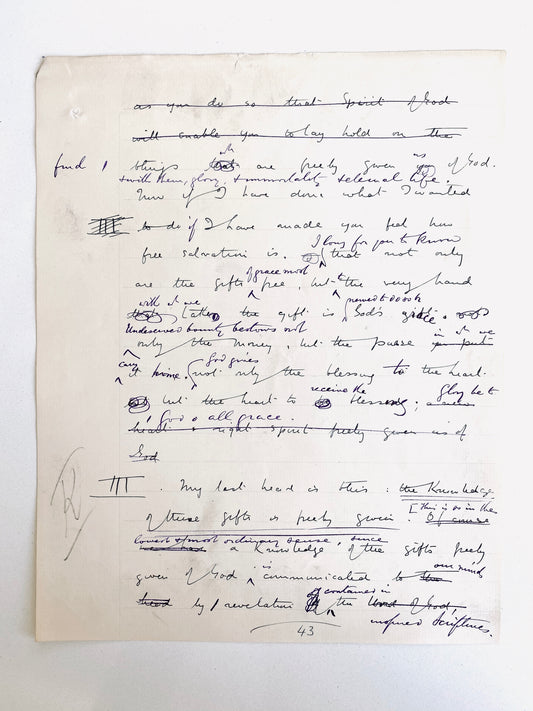 as you do so that Spirit of God
will enable you to lay hold on the
find
things that wh are freely given us of God.
& with them, glory, & immortality & eternal life.
Now if I have done what I wanted
III to do if I have made you feel how
free salvation is. I long for you to know that not only
are the gifts of grace most free, but the very hand
with wh we take the gift is God's grace.
Undeserved bounty bestows not
only the money, but the purse in wh we
carry it home. God gives not only the blessing to the heart
but the heart to receive the blessing; Glory be to
God & all grace.
heart & right spirit freely given us of
God
III. My last head is this: the Knowledge
of these gifts as freely given. [This is as in the
of course
lowest & most ordinary sense, since
a Knowledge of the gifts freely
given of God is communicated to the our minds
head by revelation of contained in the Word of God,
inspired Scriptures.
43